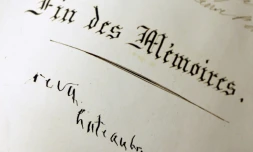 Fin des Mémoires.
revu
hateaub